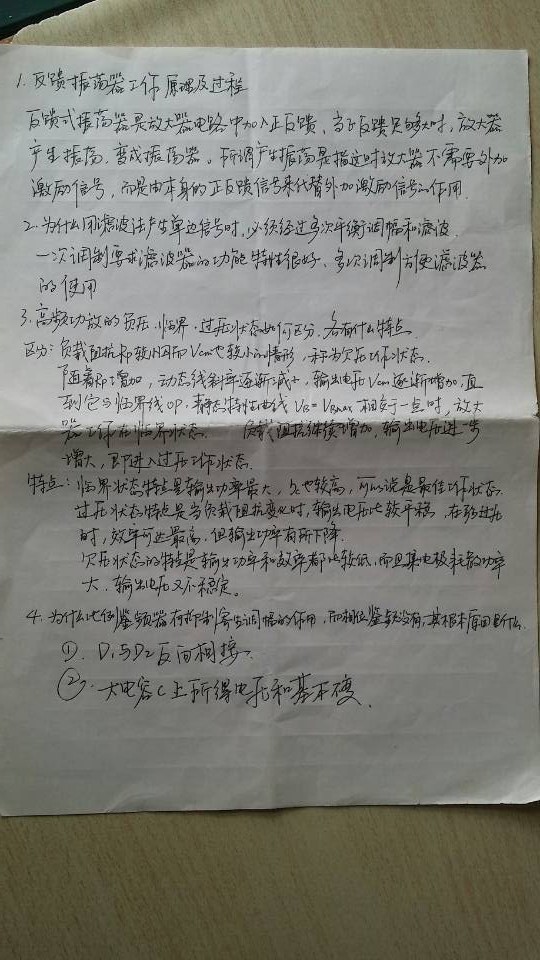 1. 反馈振荡器工作原理及过程
反馈式振荡器是放大器电路中加入正反馈、当正反馈足够大时,放大器
产生振荡,变成振荡器。所谓产生振荡是指这时放大器不需要外加
激励信号,而是由本身的正反馈信号来代替外加激励信号的作用.
2. 为什么用滤波法产生单边信号时,必须经过多次平衡调幅和滤波.
一次调制要求滤波器的功能特性很好、多次调制方便滤波器
的使用
3. 高频功放的欠压.临界.过压状态如何区分.各有什么特点
区分:负载阻抗Rp较小因而Vcm也较小的情形,称为欠压工作状态.
随着Rp增加,动态线斜率逐渐减小,输出电压Vcm逐渐增加,直
到它与临界线OP.静态特性曲线VB=VBmax相交于一点时,放大
器工作在临界状态. 负载阻抗继续增加,输出电压进一步
增大,即进入过压工作状态.
特点:临界状态特点是输出功率最大,也较高,可以说是最佳工作状态.
过压状态特点是当负载阻抗变化时,输出电压比较平稳,在弱过压
时,效率可达最高,但输出功率有所下降.
欠压状态的特点是输出功率和效率都比较低,而且集电极耗散功率
大.输出电压又不稳定。
4. 为什么比例鉴频器有抑制寄生调幅的作用,而相位鉴频没有,其根本原因是什么.
①. D1与D2反向相接.
②. 大电容C上所得电压和基本不变.